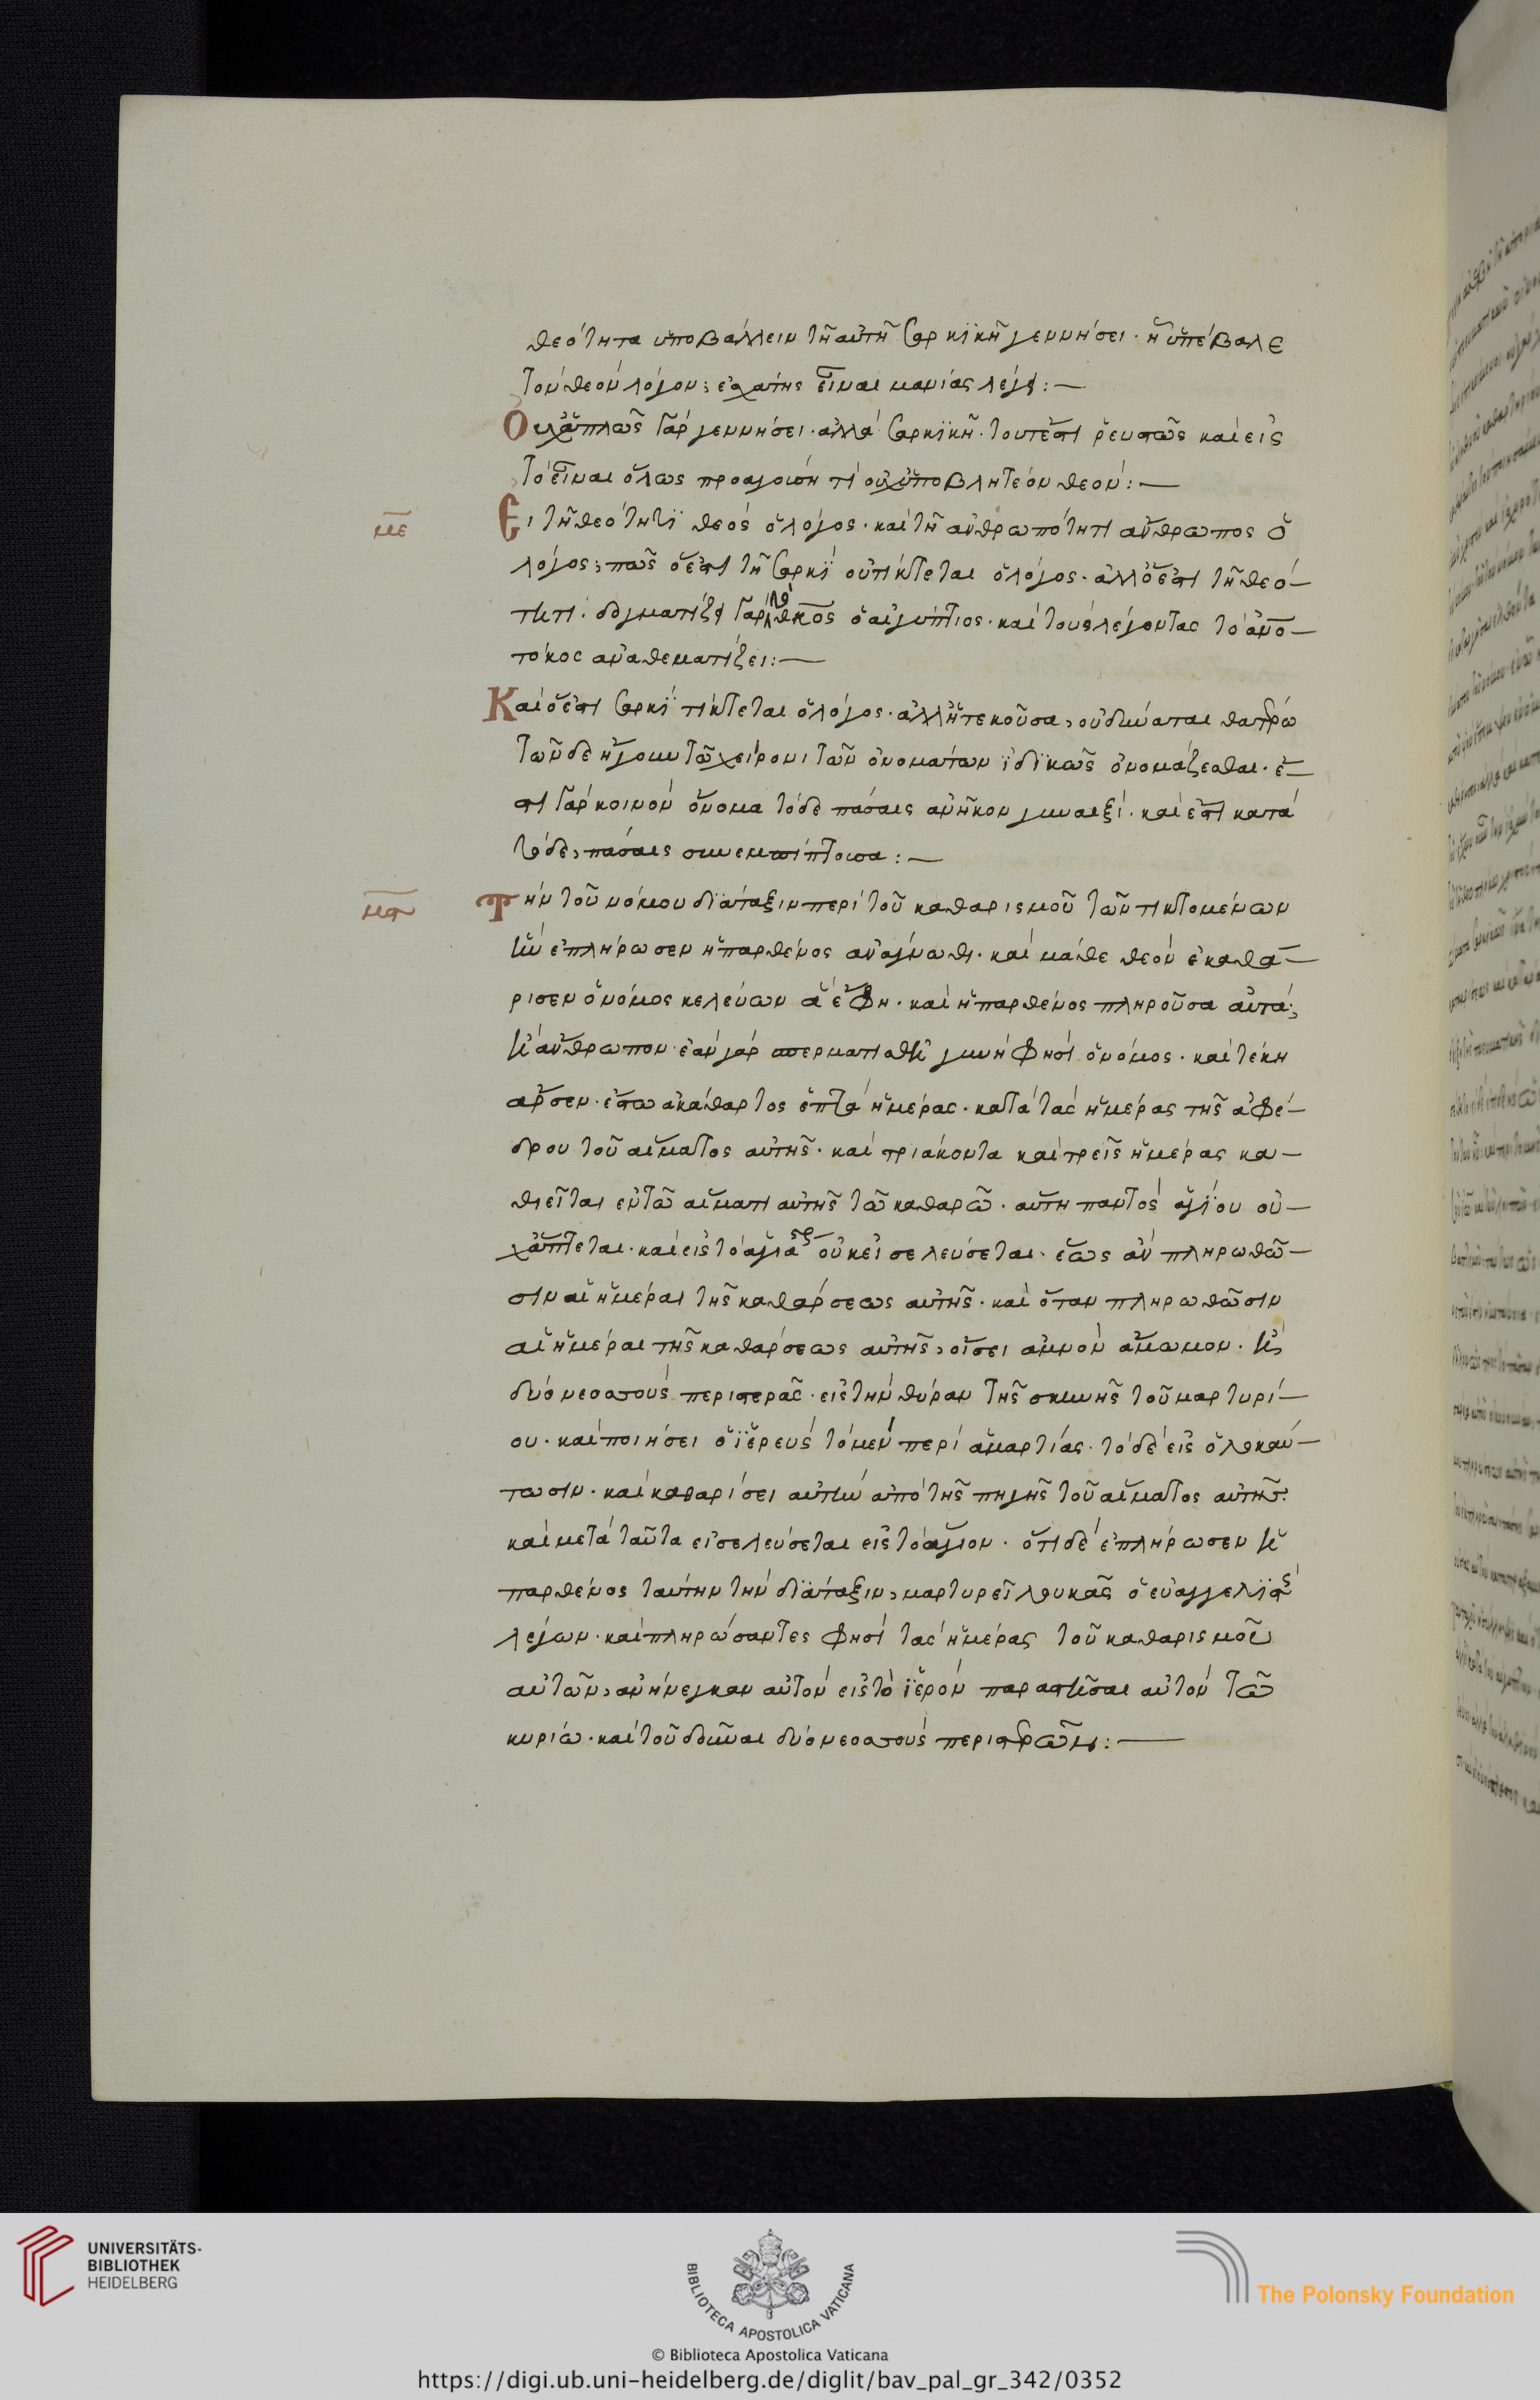 θεότητα ὑποβάλλειν τῇ αὐτῇ σαρκϊκῇ γεννήσει· ᾗ ὑπέβαλε
τὸν θεὸν λόγον; ἐσχάτης εἶναι μανίας λέγω:—
Οὐχ ἁπλῶς γὰρ γεννήσει· ἀλλὰ σαρκϊκῇ· τουτέστι ῥευστῶς καὶ εἰς
τὸ εἶναι ὅλως προαγούσῃ τί οὐχ ὑποβλητέον θεόν:—
με Εἰ τῇ θεότητϊ θεὸς ὁ λόγος· καὶ τῇ ἀνθρωπότητι ἄνθρωπος ὁ
λόγος; πῶς ὅ ἐστι τῇ σαρκϊ οὐ τίκτεται ὁ λόγος· ἀλλ' ὅ ἐστι τῇ θεό-
τητι. δογματίζει γὰρ ὁ αἰγύπτιος· καὶ τοὺς λέγοντας τὸ ἀνο-
τόκος ἀναθεματίζει:—
Καὶ ὅ ἐστι σαρκϊ τίκτεται ὁ λόγος· ἀλλ' ἡ τεκοῦσα, οὐ δύναται θατέρω
τῶνδε ἤγουν τῶ χείρονι τῶν ὀνομάτων ϊδϊκῶς ὀνομάζεσθαι· ἔ-
στι γὰρ κοινὸν ὄνομα τόδε πάσαις ἀνῆκον γυναιξί· καὶ ἔστι κατὰ
τόδε, πάσαις συνεμπίπτουσα:—
μϛ Τὴν τοῦ νόμου διάταξιν περὶ τοῦ καθαρισμοῦ τῶν τικτομένων
ἣν ἐπλήρωσεν ἡ παρθένος ἀνάγνωθι· καὶ μάθε θεὸν ἐκαθά-
ρισεν ὁ νόμος κελεύων ἃ ἔφη· καὶ ἡ παρθένος πληροῦσα αὐτά;
ἢ ἄνθρωπον· ἐὰν γὰρ σπερματισθῇ γυνὴ φησὶ ὁ νόμος· καὶ τέκη
ἄρσεν· ἔστω ἀκάθαρτος ἑπτὰ ἡμέρας· κατὰ τὰς ἡμέρας τῆς ἀφέ-
δρου τοῦ αἵματος αὐτῆς· καὶ τριάκοντα καὶ τρεῖς ἡμέρας κα-
θιεῖται ἐν τῶ αἵματι αὐτῆς τῶ καθαρῶ· αὕτη παντὸς ἁγίου οὐ-
χ ἅπτεται· καὶ εἰς τὸ οὐκ εἰσελεύσεται· ἕως ἂν πληρωθῶ-
σιν αἱ ἡμέραι τῆς καθάρσεως αὐτῆς· καὶ ὅταν πληρωθῶσιν
αἱ ἡμέραι τῆς καθάρσεως αὐτῆς, οἴσει ἀμνὸν ἄμωμον· ἢ
δύο νεοσσοὺς περιστερᾶς· εἰς τὴν θύραν τῆς σκηνῆς τοῦ μαρτυρί-
ου· καὶ ποιήσει ὁ ϊερεὺς τὸ μὲν περὶ ἁμαρτίας· τὸ δὲ εἰς ὁλοκαύ-
τωσιν· καὶ καθαρίσει αὐτὴν ἀπὸ τῆς πηγῆς τοῦ αἵματος αὐτῆς·
καὶ μετὰ ταῦτα εἰσελεύσεται εἰς τὸ ἅγιον· ὅτι δὲ ἐπλήρωσεν ἡ
παρθένος ταύτην τὴν διάταξιν, μαρτυρεῖ λουκᾶς ὁ εὐαγγελϊστὴς
λέγων· καὶ πληρώσαντες φησὶ τὰς ἡμέρας τοῦ καθαρισμοῦ
αὐτῶν, ἀνήνεγκαν αὐτὸν εἰς τὸ ϊερὸν παραστῆσαι αὐτὸν τῶ
κυρίω· καὶ τοῦ δοῦναι δύο νεοσσοὺς περιστερῶν:—
UNIVERSITÄTS-
BIBLIOTHEK
HEIDELBERG
BIBLIOTECA APOSTOLICA VATICANA
The Polonsky Foundation
© Biblioteca Apostolica Vaticana
https://digi.ub.uni-heidelberg.de/diglit/bav_pal_gr_342/0352